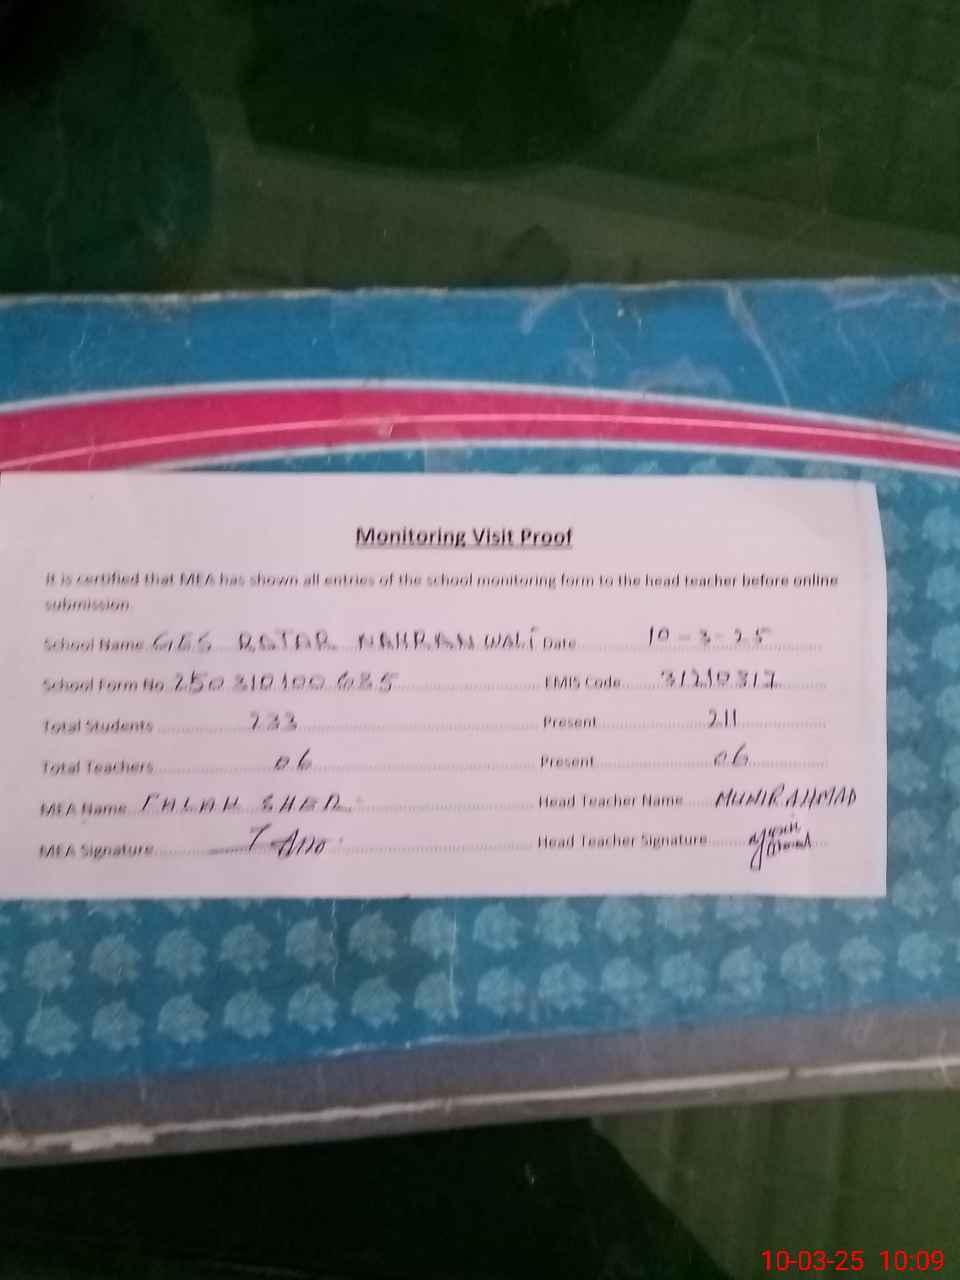 Monitoring Visit Proof
It is certified that MEA has shown all entries of the school monitoring form to the head teacher before online
submission.
School Name GES RATAR NAHRAN WALI Date 10-3-25
School Form No 250310100685 EMIS Code 31210317
Total Students 233 Present 211
Total Teachers 06 Present 06
MEA Name FALAK SHER Head Teacher Name MUNIR AHMAD
MEA Signature Head Teacher Signature Munir Ahmad
10-03-25 10:09